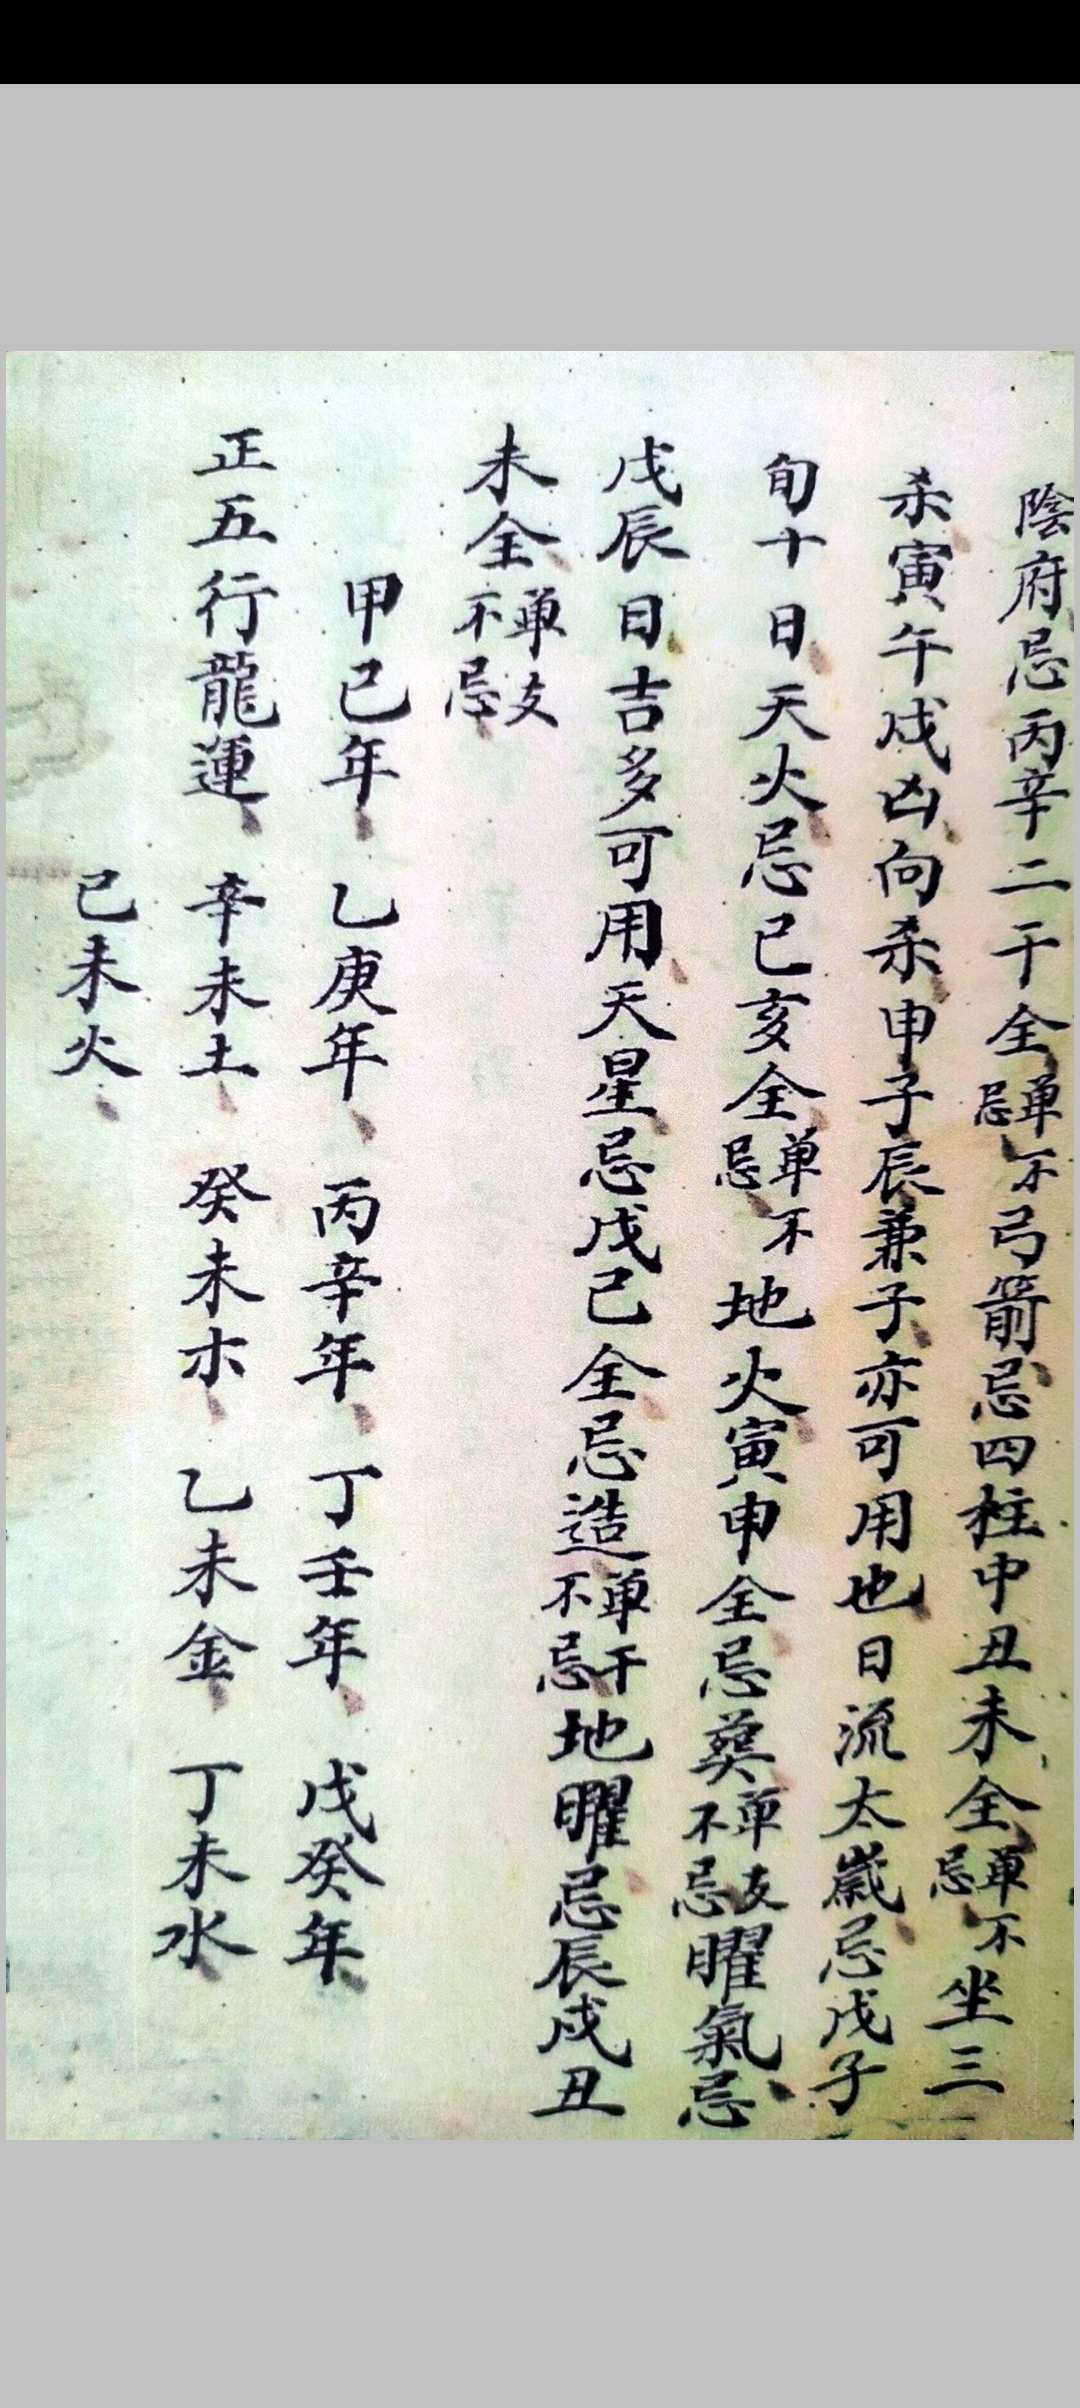 陰府忌丙辛二干全單不忌弓箭忌四柱中丑未全單不忌坐三
杀寅午戌凶向杀申子辰兼子亦可用也日流太歲忌戊子
旬十日天火忌巳亥全單不忌地火寅申全忌葬單支不忌曜氣忌
戊辰日吉多可用天星忌戊己全忌造單干不忌地曜忌辰戌丑
未全單支不忌
甲己年乙庚年、丙辛年、丁壬年、戊癸年、
正五行龍運、辛未土、癸未木、乙未金、丁未水、
己未火、